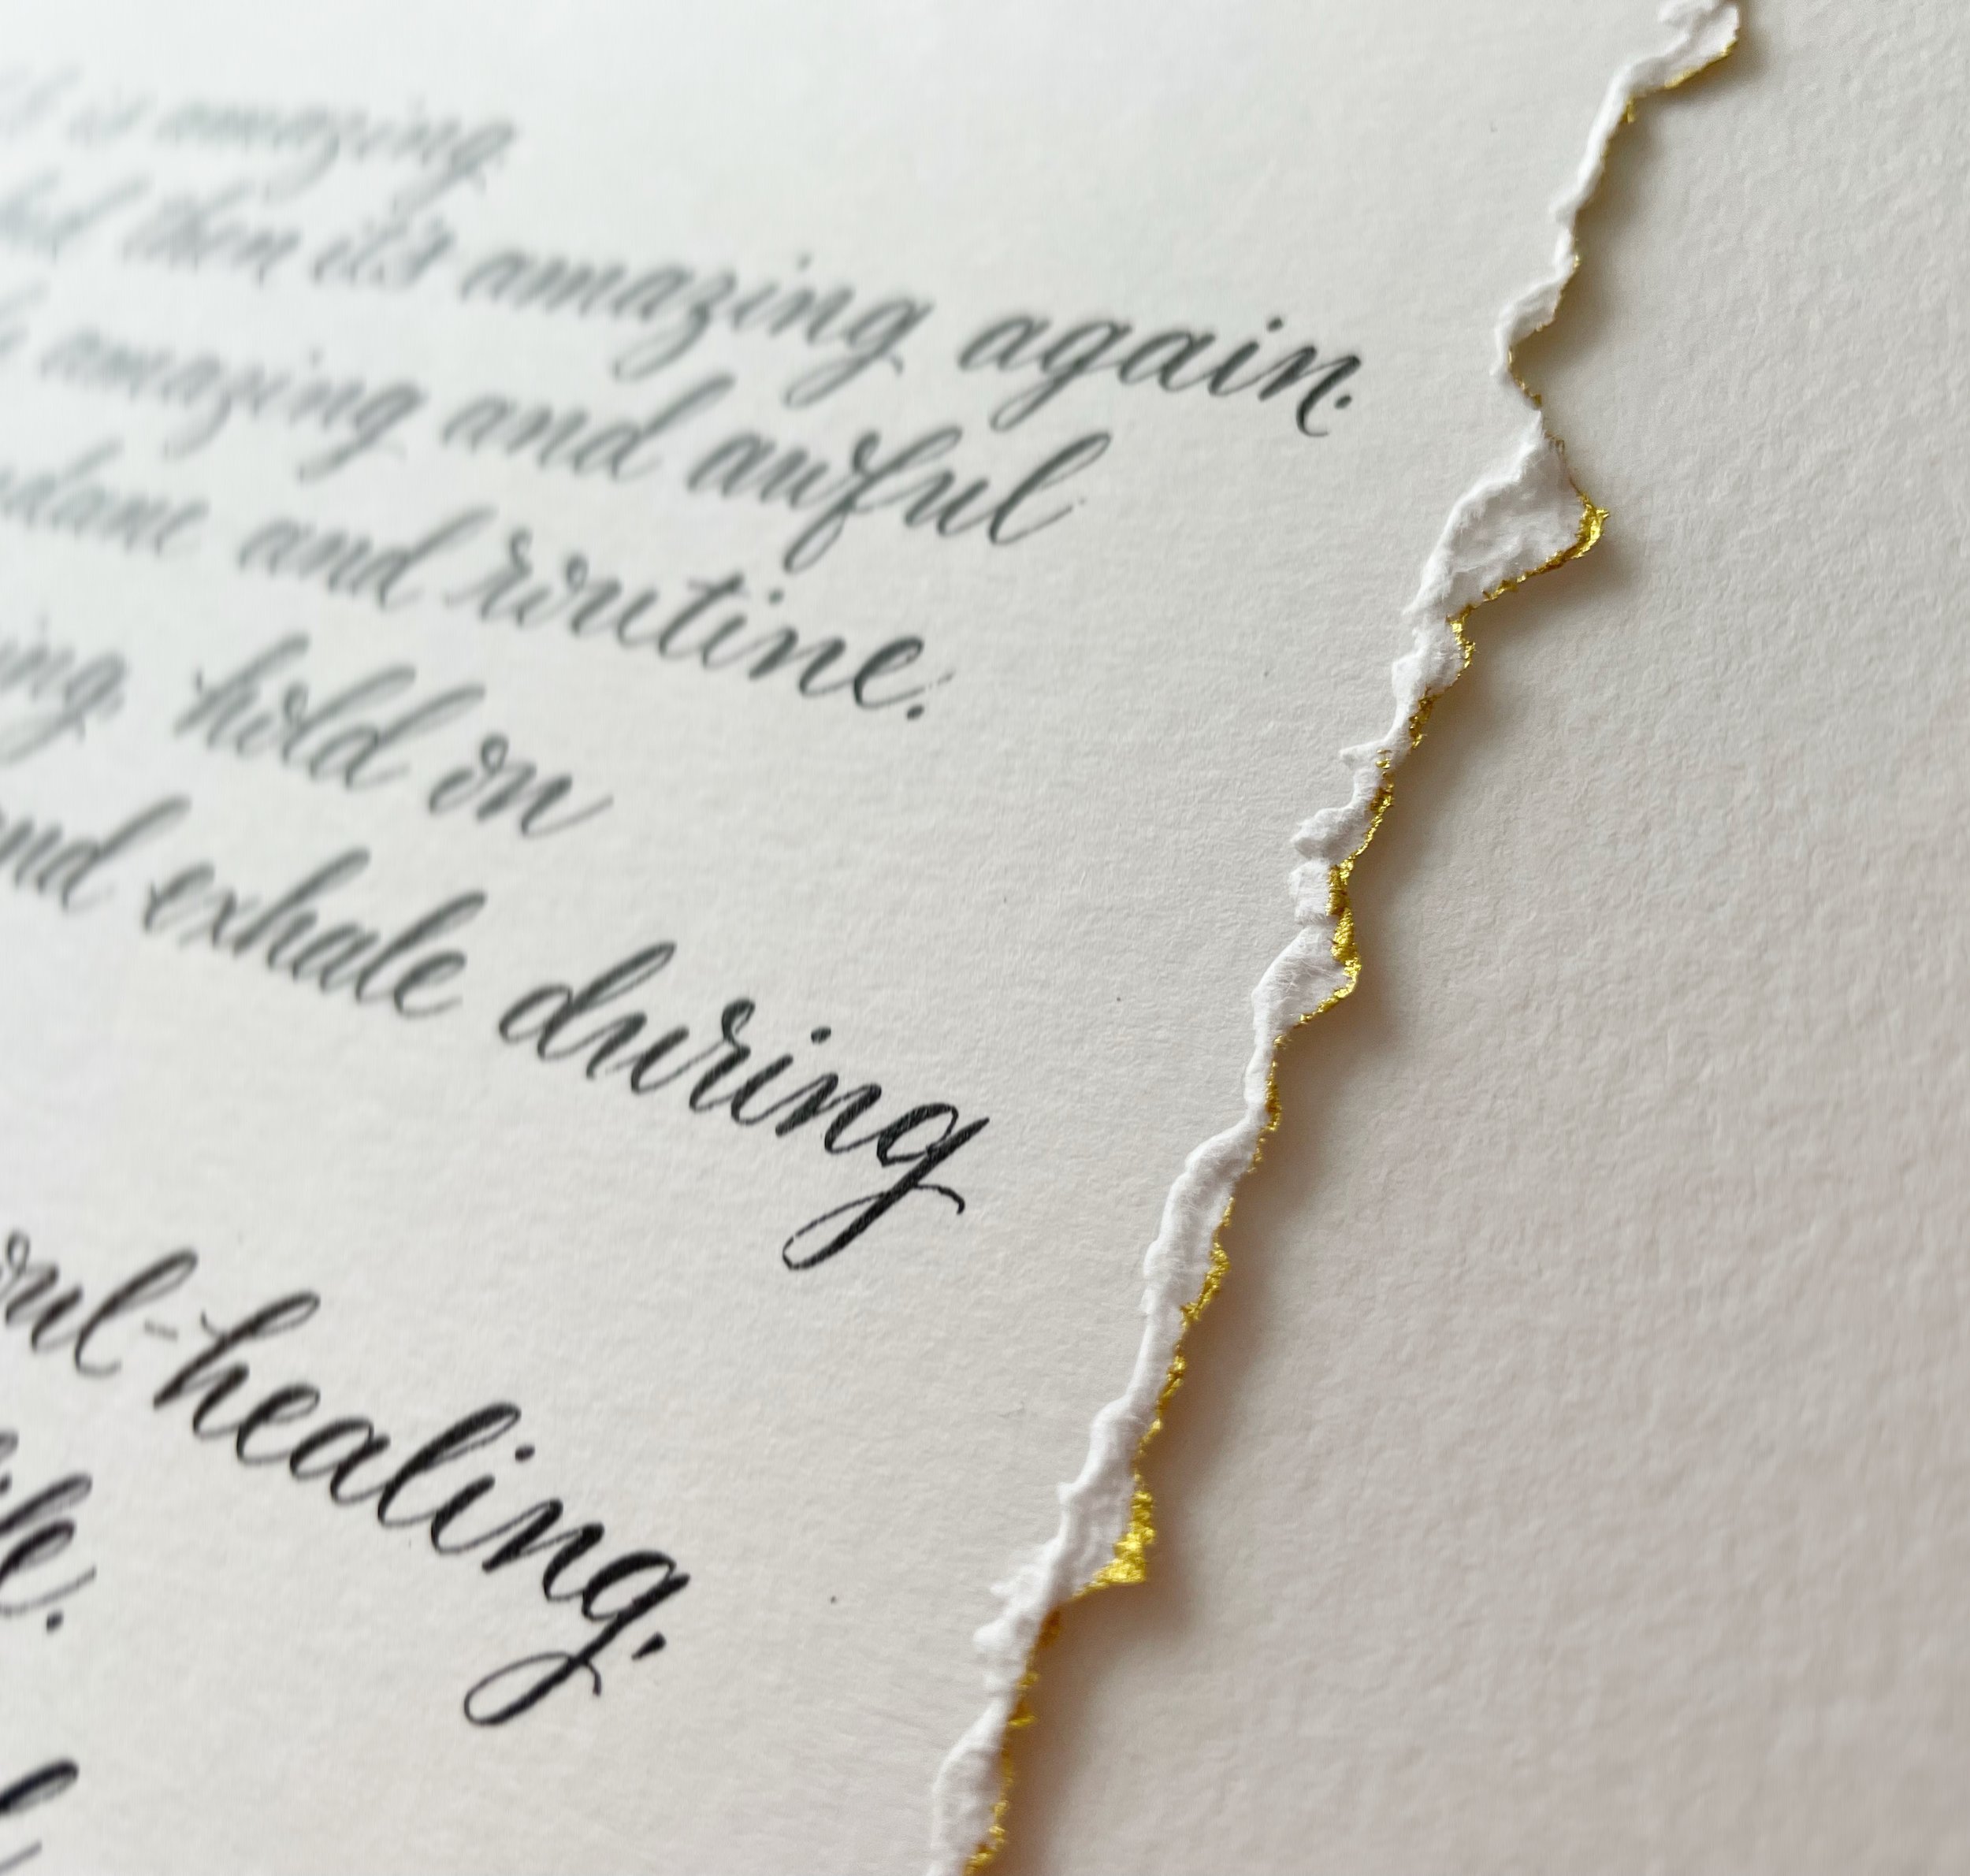 is amazing.
then it's amazing again.
amazing and awful
and routine.
hold on
and exhale during
-healing,